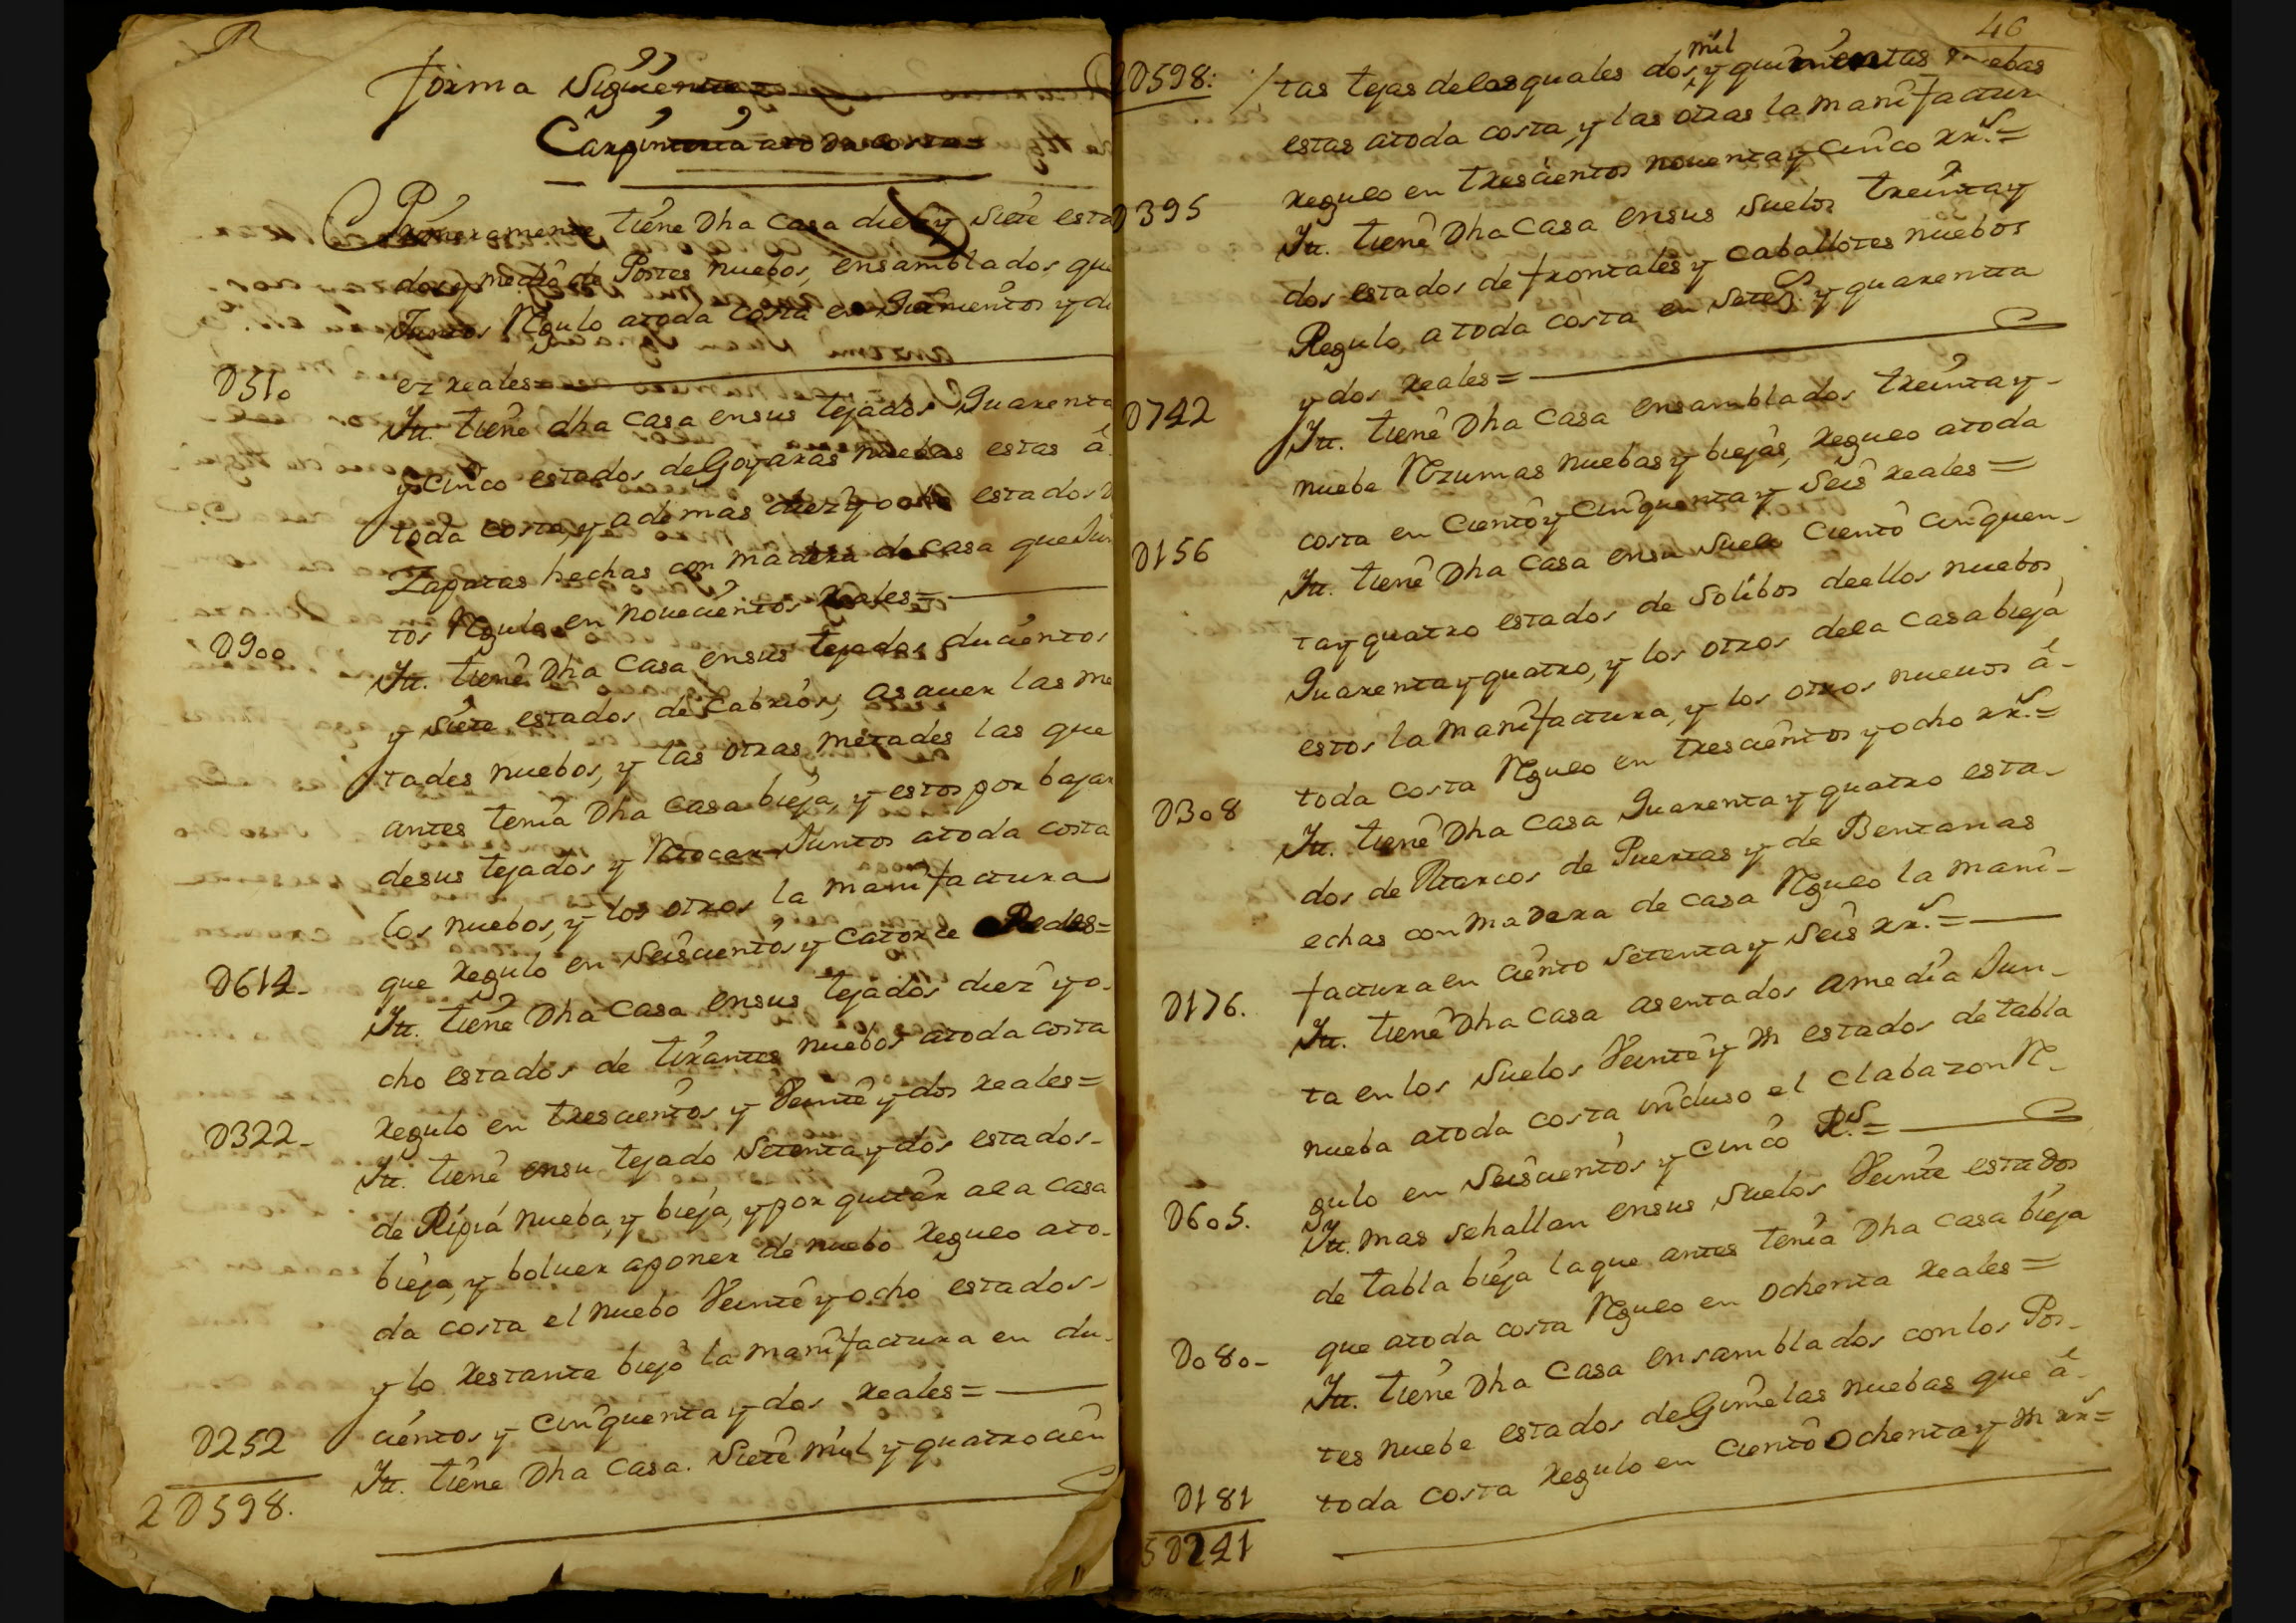 forma Siguiente
Carpinteria a toda costa=
Primeramente tiene Dha Casa diez y Siete esta
dos y medio de Postes nuebos, ensamblados que
Juntos Regulo atoda costa en quinientos y di
D510 ez reales=
Itt. tiene dha casa ensus tejados Quarenta
y cinco estados de Goyaras nuebas estas â
toda costa, y ademas diez y ocho estados D
Zapatas hechas con madera de casa que Jun
tos Regulo en nouecientos Reales=
D900
Itt. tiene Dha Casa ensus tejados ducientos
y siete estados de Cabrios, asauer las me
tades nuebos, y las otras metades las que
antes tenia Dha Casa bieja, y estos por bajar
desus tejados y Retocar Juntos atoda costa
los nuebos, y los otros la manifactura
que regulo en Seiscientos y Catorce Reales=
D614-
Itt. tiene Dha Casa ensus tejados diez y o-
cho estados de tirantes nuebos atoda costa
regulo en trescientos y Veinte y dos reales=
D322-
Itt. tiene ensu tejado Setenta y dos estados-
de Ripia nueba, y bieja, y por quitar ala casa
bieja, y boluer aponer de nuebo regulo ato-
da costa el nuebo Veinte y ocho estados-
y lo restante biejo la manifactura en du-
cientos y cinquenta y dos reales=
D252
Itt. tiene Dha Casa. Siete mil y quatrocien
2D598.
46
2D598: tas tejas delas quales dos mil y quinientas nuebas
estas atoda costa, y las otras la manifactura
regulo en trescientos nouenta y cinco rrs.=
D395
Itt. tiene Dha Casa ensus suelos treinta y
dos estados de frontales y caballotes nuebos
Regulo atoda costa en setezs. y quarenta
y dos reales=
D742
Itt. tiene Dha Casa ensamblados treinta y-
nuebe Rzumas nuebas y biejas, regulo atoda
costa en Ciento y Cinquenta y Seis reales=
D156
Itt. tiene Dha Casa ensu suelo Ciento cinquen-
ta y quatro estados de Solibos deellos nuebos
Quarenta y quatro, y los otros dela Casa bieja
estos la manifactura, y los otros nueuos â-
toda costa Regulo en trescientos y ocho rrs.=
D308
Itt. tiene Dha Casa Quarenta y quatro esta-
dos de Marcos de Puertas y de Bentanas
echas con madera de casa Regulo la mani-
factura en ciento Setenta y Seis rrs.=
D176.
Itt. tiene Dha Casa asentados amedia Jun-
ta en los Suelos Veinte y un estados de tabla
nueba atoda costa incluso el Clabazon Re-
gulo en Seiscientos y cinco Rs.=
D605.
Itt. mas sehallan ensus Suelos Veinte estados
de tabla bieja laque antes tenia Dha casa bieja
que atoda costa Regulo en ochenta reales=
D080-
Itt. tiene Dha Casa ensamblados con los Pos-
tes nuebe estados de Gimelas nuebas que â-
toda costa regulo en ciento ochenta y un rrs=
D181
5D241